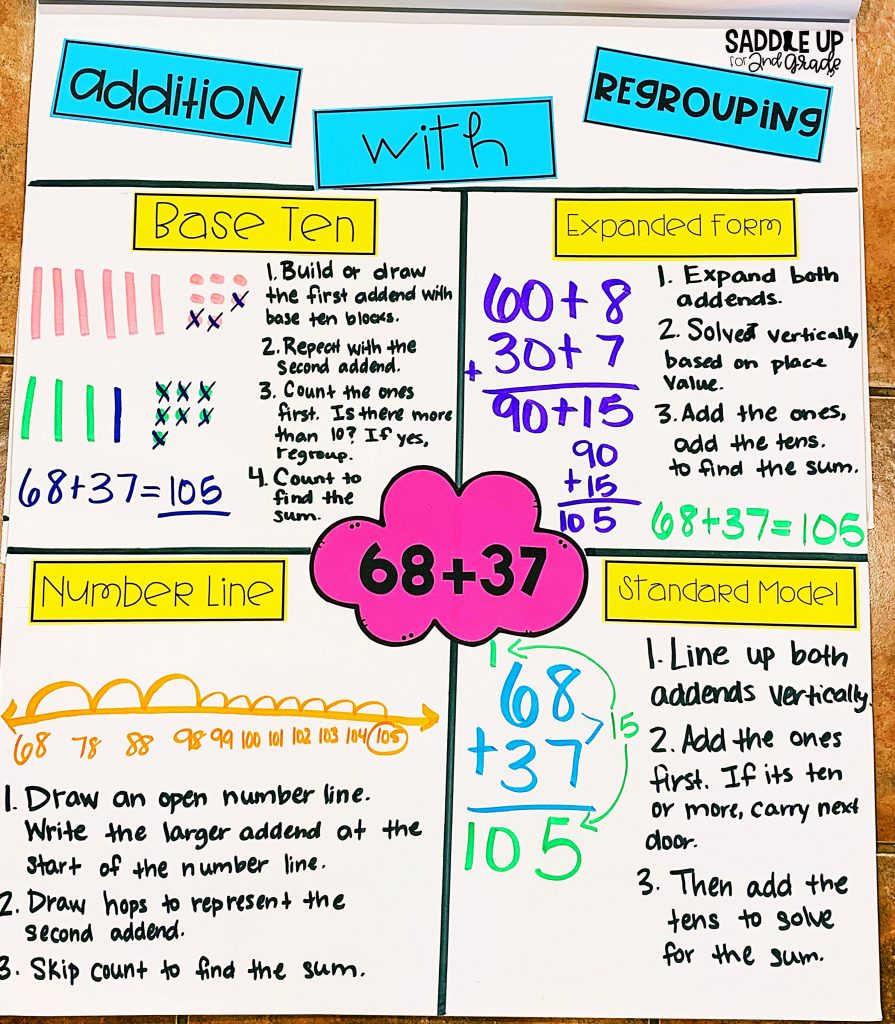 SADDLE UP
for 2nd Grade
Addition
with
Regrouping
Base Ten
1. Build or draw
the first addend with
base ten blocks.
2. Repeat with the
second addend.
3. Count the ones
first. Is there more
than 10? If yes,
regroup.
4. Count to
find the
sum.
68+37=105
Expanded Form
60+8
+30+7
90+15
90
+15
105
1. Expand both
addends.
2. Solved vertically
based on place
value.
3. Add the ones,
add the tens.
to find the sum.
68+37=105
68+37
Number Line
68 78 88 98 99 100 101 102 103 104 105
1. Draw an open number line.
Write the larger addend at the
start of the number line.
2. Draw hops to represent the
second addend.
3. Skip count to find the sum.
Standard Model
1
68
+37
15
105
1. Line up both
addends vertically.
2. Add the ones
first. If its ten
or more, carry next
door.
3. Then add the
tens to solve
for the sum.